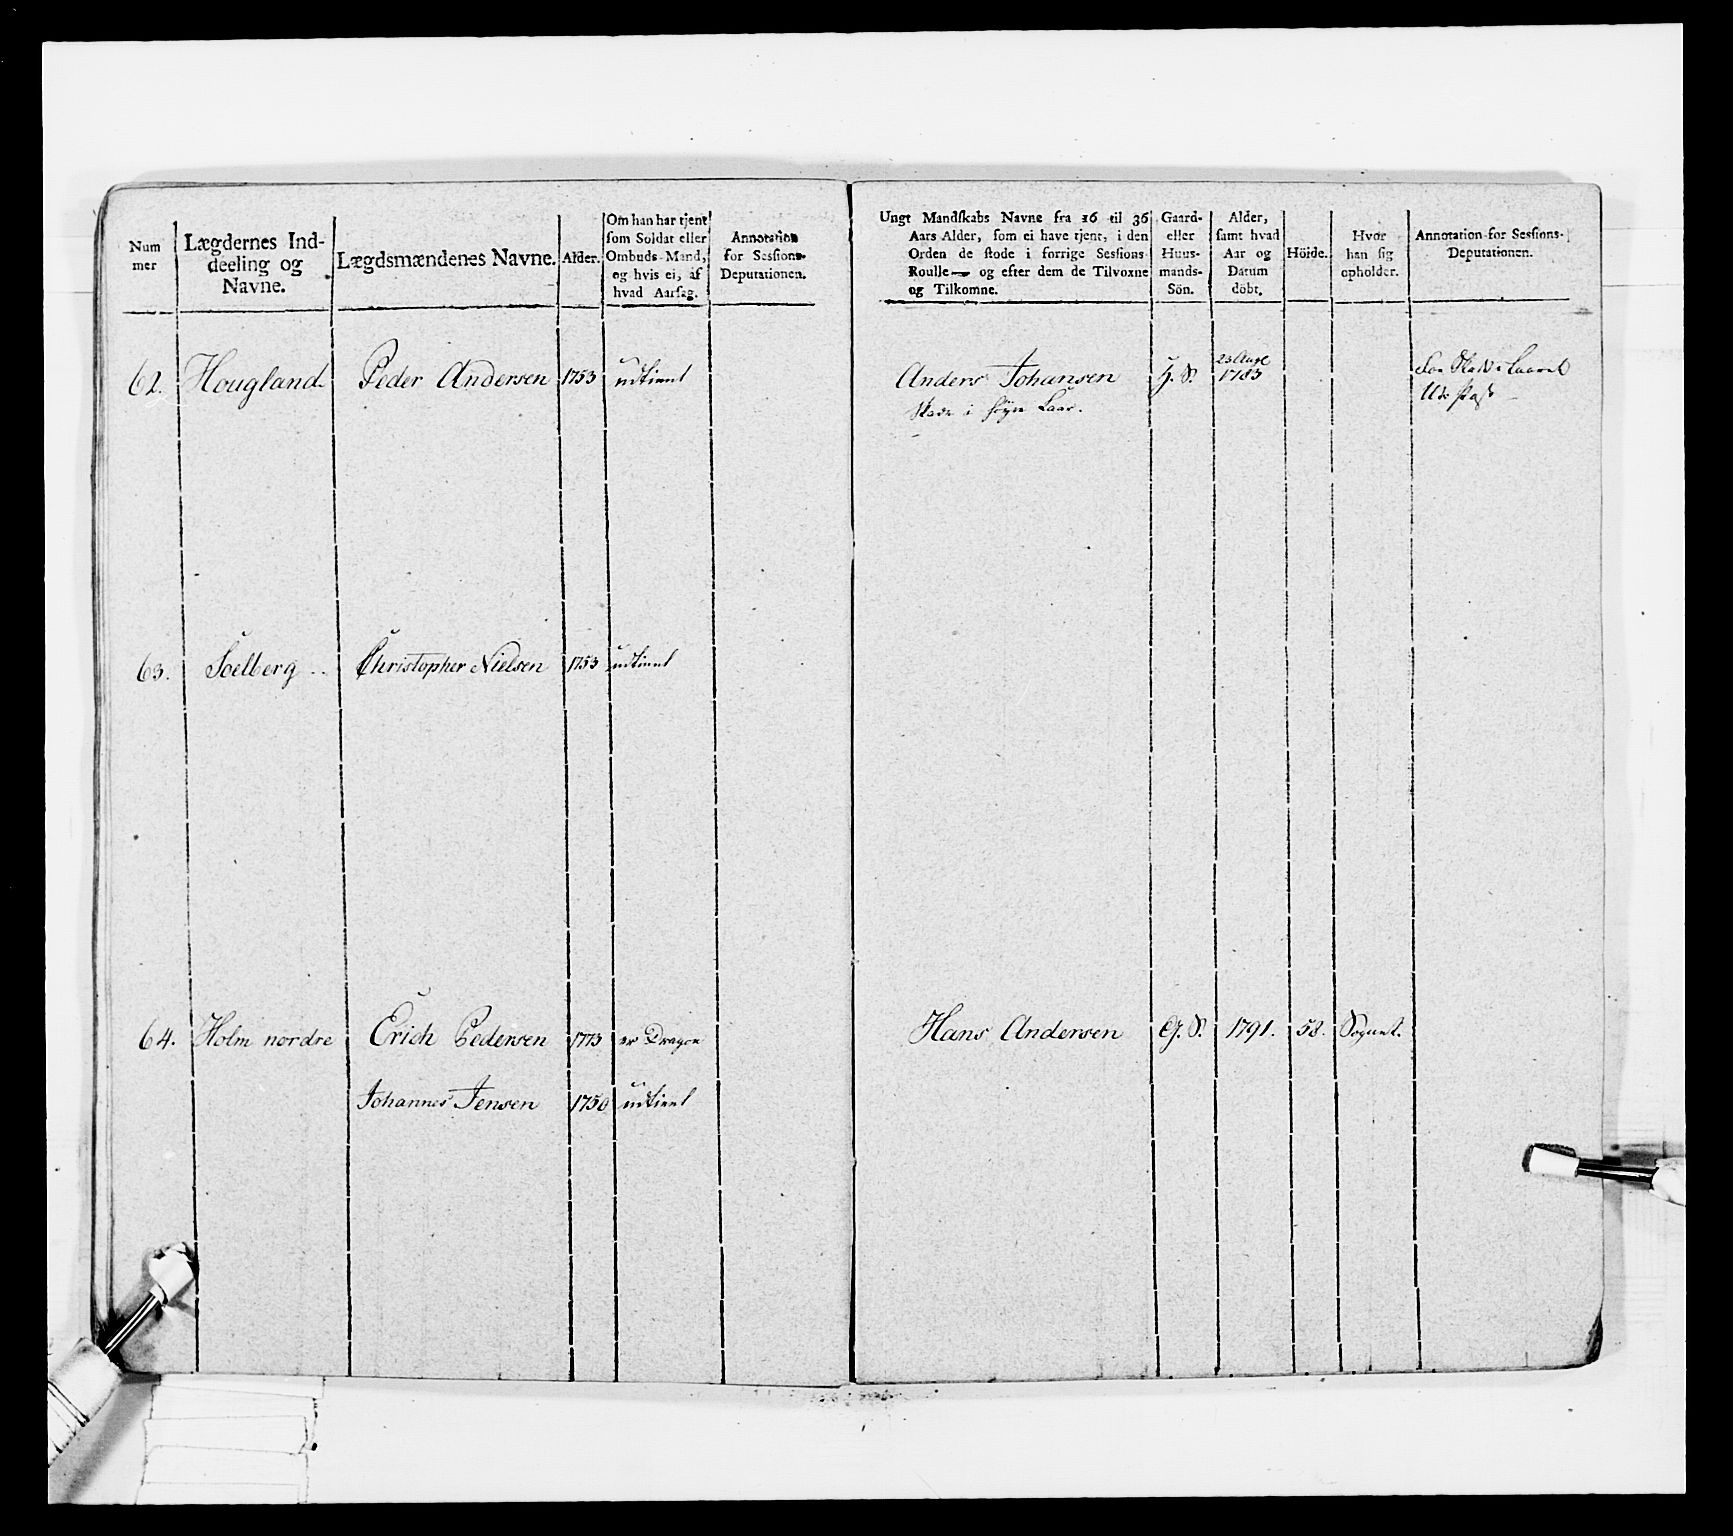 Num
mer
Lægdernes Ind-
deeling og
Navne.
Lægdsmændenes Navne.
Alder.
Om han har tjent
som Soldat eller
Ombuds-Mand,
og hvis ei, af
hvad Aarsag.
Annotation
for Sessions-
Deputationen.
Ungt Mandskabs Navne fra 16 til 36
Aars Alder, som ei have tjent, i den
Orden de stode i forrige Sessions-
Roulle — og efter dem de Tilvoxne
og Tilkomne.
Gaard-
eller
Huus-
mands-
Sön.
Alder,
samt hvad
Aar og
Datum
döbt.
Höide.
Hvor
han sig
opholder.
Annotation for Sessions-
Deputationen.
62. Hougland Peder Andersen 1753 udtient
Anders Johansen H. S. 23 Aug 1783
Skade i høyre Laar.
Skade i Laaret
63. Soelberg Christopher Nielsen 1753 udtient
64. Holm nordre Erich Pedersen 1773 er Dragon
Hans Andersen G. S. 1791. 58. Sognet.
Johannes Jensen 1750 udtient